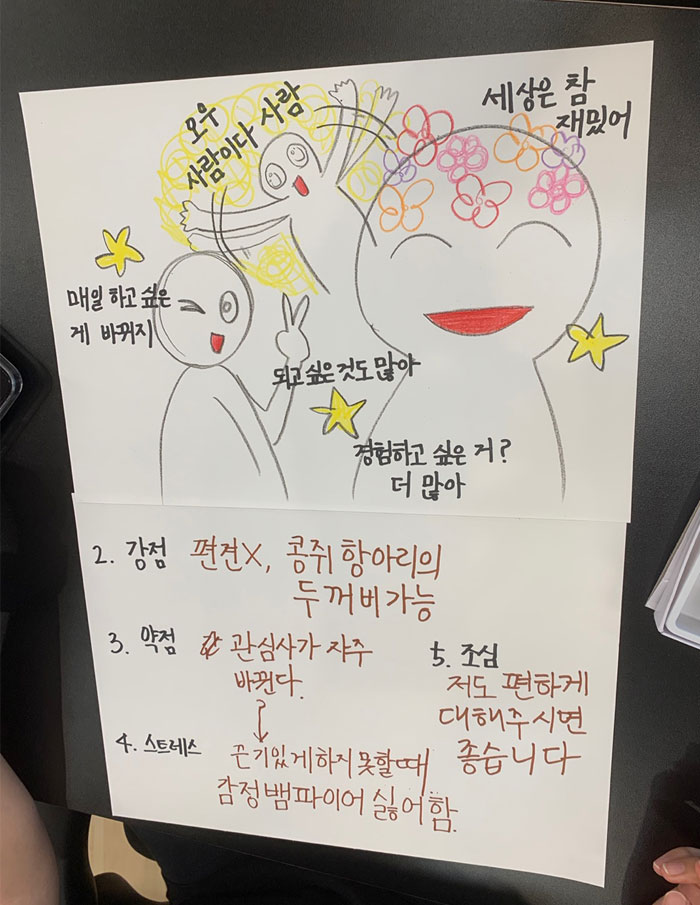 오우
사람이다 사람
세상은 참
재밌어
매일 하고 싶은
게 바뀌지
되고 싶은 것도 많아
경험하고 싶은 거?
더 많아
2. 강점 편견X, 콩쥐 항아리의
두꺼비 가능
3. 약점 관심사가 자주
바뀐다.
4. 스트레스 끈기있게 하지 못할 때
감정 뱀파이어 싫어함.
5. 조심
저도 편하게
대해주시면
좋습니다